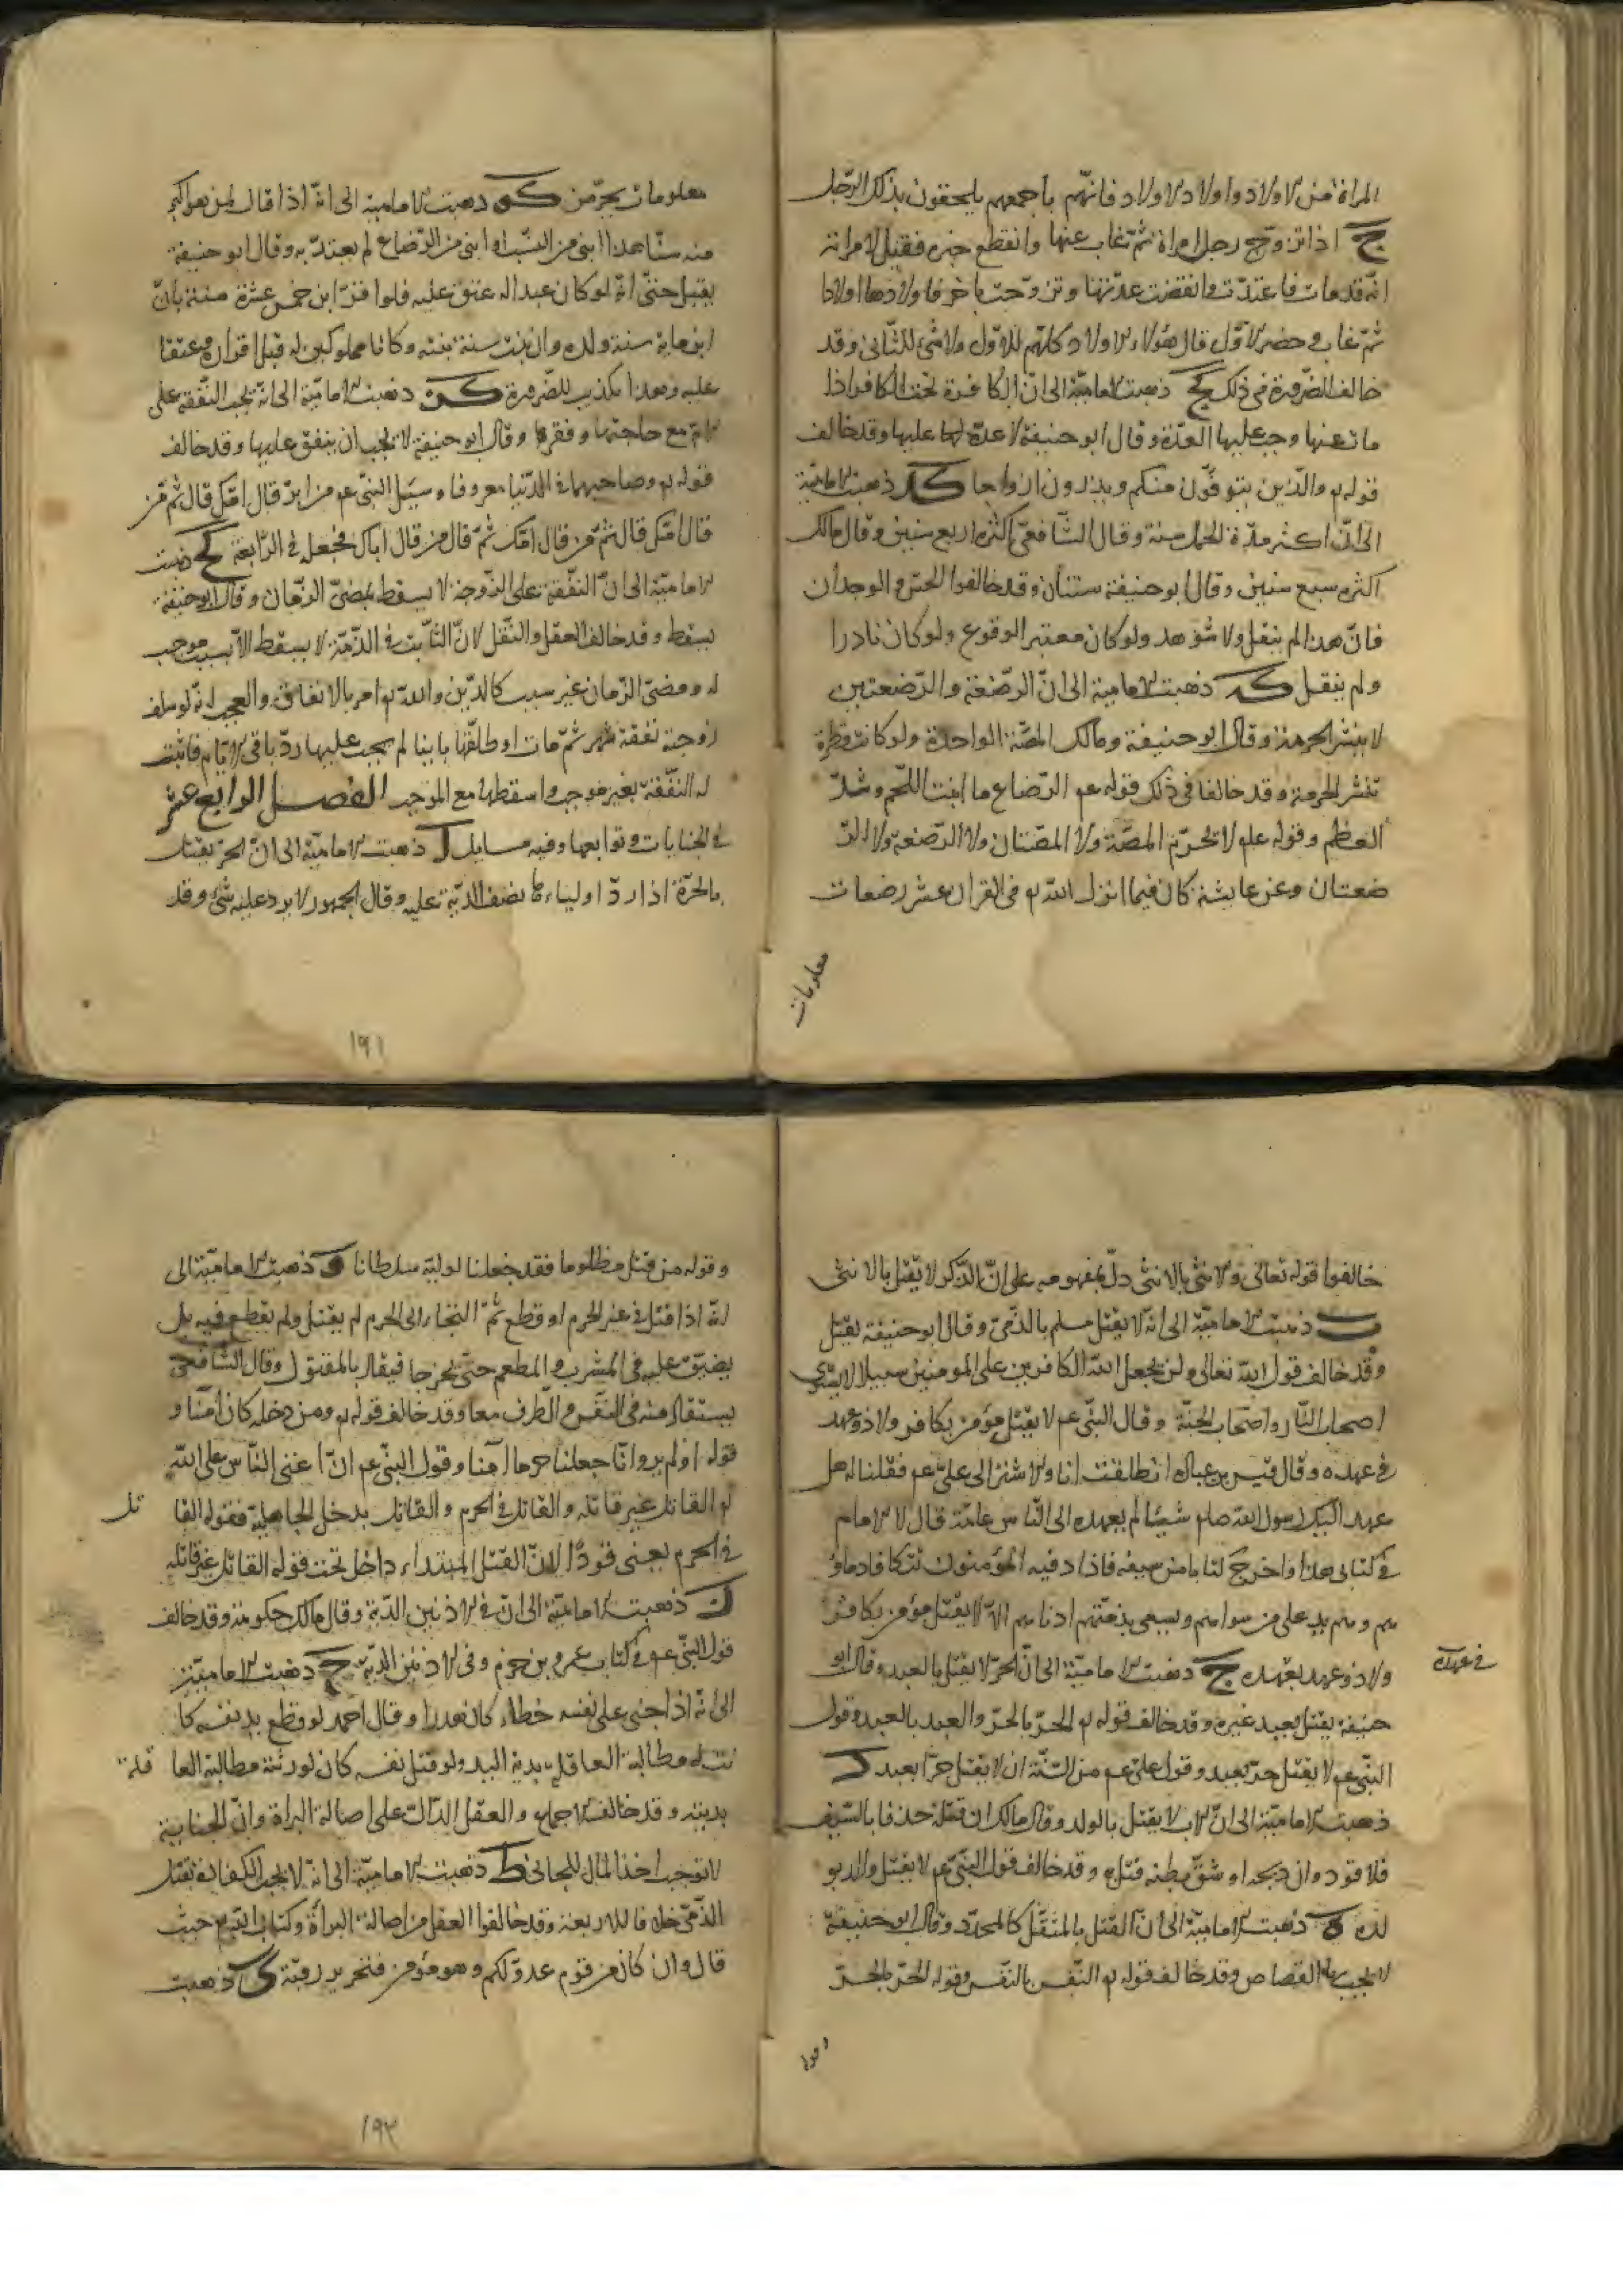 المراة من الاولاد واولاد الاولاد فانهم باجمعهم يلحقون بذلك الرجل
ج اذا تزوج رجل امراة ثم غاب عنها وانقطع خبره فقيل لامراته
انه قد مات فاعتدت وانقضت عدتها وتزوجت باخر فاولدها اولادا
ثم غاب وحضر الاول قال هؤلاء الاولاد كلهم للاول ولا شئ للثانى وقد
خالف الضرورة فى ذلك كج ذهبت الامامية الى ان الكافرة تحت الكافر اذا
مات عنها وجب عليها العدة وقال ابو حنيفة لا عدة لها عليها وقد خالف
قوله تع والذين يتوفون منكم ويذرون ازواجا كد ذهبت الامامية
الى ان اكثر مدة الحمل سنة وقال الشافعى اكثره اربع سنين وقال مالك
اكثره سبع سنين وقال ابو حنيفة سنتان وقد خالفوا الحس والوجدان
فان هذا لم ينقل ولا شوهد ولو كان معتبر الوقوع ولو كان نادرا
ولم ينقل كه ذهبت الامامية الى ان الرضعة والرضعتين
لا ينشر الحرمة وقال ابو حنيفة ومالك المصة الواحدة ولو كانت قطرة
تنشر الحرمة وقد خالفا فى ذلك قوله عم الرضاع ما انبت اللحم وشد
العظم وقوله علم لا تحرم المصة ولا المصتان ولا الرضعة ولا الر
ضعتان وعن عايشة كان فيما انزل الله تع فى القران عشر رضعات
معلومات
معلومات يحرمن كو ذهبت الامامية الى انه اذا قال لمن هو اكبر
منه سنا هذا ابنى من النسب او ابنى من الرضاع لم يعتد به وقال ابو حنيفة
يقبل حتى انه لو كان عبدا له عتق عليه فلو اقر ابن خمس عشرة سنة بان
ابن ماية سنة ولده وان بنت سنة بنته وكانا مملوكين له قبل اقراره وعتقا
عليه وهذا تكذيب للضرورة كز ذهبت الامامية الى انه تجب النفقة على
الام مع حاجتها وفقرها وقال ابو حنيفة لا يجب ان ينفق عليها وقد خالف
قوله تع وصاحبهما فى الدنيا معروفا وسئل النبى عم من ابر قال امك قال ثم من
قال امك قال ثم من قال امك ثم قال من قال اباك فجعل فى الرابعة كح ذهبت
الامامية الى ان النفقة على الزوجة لا يسقط بمضى الزمان وقال ابو حنيفة
يسقط وقد خالف العقل والنقل لان الثابت فى الذمة لا يسقط الا بسبب موجب
له ومضى الزمان غير سبب كالدين والله تع امر بالانفاق والعجب انه لو سلف
زوجته نفقة شهر ثم مات او طلقها باينا لم يجب عليها رد باقى الايام فاثبت
له النفقة بغير موجب واسقطها مع الموجب الفصل الرابع عشر
فى الجنايات وتوابعها وفيه مسايل ا ذهبت الامامية الى ان الحر يقتل
بالحرة اذا رد اولياءها نصف الدية عليه وقال الجمهور لا يرد عليه شئ وقد
١٩١
خالفوا قوله تعالى والانثى بالانثى دل بمفهومه على ان الذكر لا يقتل بالانثى
ب ذهبت الامامية الى انه لا يقتل مسلم بالذمى وقال ابو حنيفة يقتل
وقد خالف قول الله تعالى ولن يجعل الله الكافرين على المومنين سبيلا لا يستوى
اصحاب النار واصحاب الجنة وقال النبى عم لا يقتل مؤمن بكافر ولا ذو عهد
فى عهده وقال قيس بن عباد انطلقت انا والاشتر الى على عم فقلنا له هل
عهد اليك رسول الله صلم شيئا لم يعهده الى الناس عامة قال لا الا ما
فى كتابى هذا واخرج كتابا من سيفه فاذا فيه المؤمنون تتكافا دماؤ
هم وهم يد على من سواهم ويسعى بذمتهم ادناهم الا لا يقتل مؤمن بكافر
ولا ذو عهد بعهده ج ذهبت الامامية الى ان الحر لا يقتل بالعبد وقال ابو
فى عهده
حنيفة يقتل بعبد غيره وقد خالف قوله تع الحر بالحر والعبد بالعبد وقول
النبى عم لا يقتل حر بعبد وقول على عم من السنة ان لا يقتل حر بعبد د
ذهبت الامامية الى ان الاب لا يقتل بالولد وقال مالك ان قتله حذفا بالسيف
فلا قود وان ذبحه او شق بطنه قتل به وقد خالف قول النبى عم لا يقتل والد بو
لده ه ذهبت الامامية الى ان القتل بالمثقل كالمحدد وقال ابو حنيفة
لا يجب به القصاص وقد خالف قوله تع النفس بالنفس وقوله الحر بالحر
وقوله
وقوله من قتل مظلوما فقد جعلنا لوليه سلطانا و ذهبت الامامية الى
انه اذا قتل فى غير الحرم او قطع ثم التجاء الى الحرم لم يقتل ولم يقطع فيه بل
يضيق عليه فى المشرب والمطعم حتى يخرج فيقاد بالمقتول وقال الشافعى
يستقاد منه فى النفس والطرف معا وقد خالف قوله تع ومن دخله كان آمنا و
قوله اولم يروا انا جعلنا حرما آمنا وقول النبى عم ان اعتى الناس على الله
تع القاتل غير قاتله والقاتل فى الحرم والقاتل بدخل الجاهلية فقوله القا تل
فى الحرم يعنى قودا لان القتل المبتداء داخل تحت قوله القاتل غير قاتله
ز ذهبت الامامية الى ان فى الاذنين الدية وقال مالك حكومة وقد خالف
قول النبى عم فى كتاب عمرو بن حزم وفى الاذنين الدية ح ذهبت الامامية
الى انه اذا جنى على نفسه خطاء كان هدرا وقال احمد لو قطع يد نفسه كا
نت له مطالبة العاقلة بدية اليد ولو قتل نفسه كان لورثته مطالبة العا قلة
بديته وقد خالف الاجماع والعقل الدال على اصالة البراة وان الجناية
لا توجب اخذ المال للجانى ط ذهبت الامامية الى انه لا يجب الكفارة بقتل
الذمى خلافا للاربعة وقد خالفوا العقل من اصالة البرأة وكتاب الله تع حيث
قال وان كان من قوم عدو لكم وهو مؤمن فتحرير رقبة ى ذهبت
١٩٢